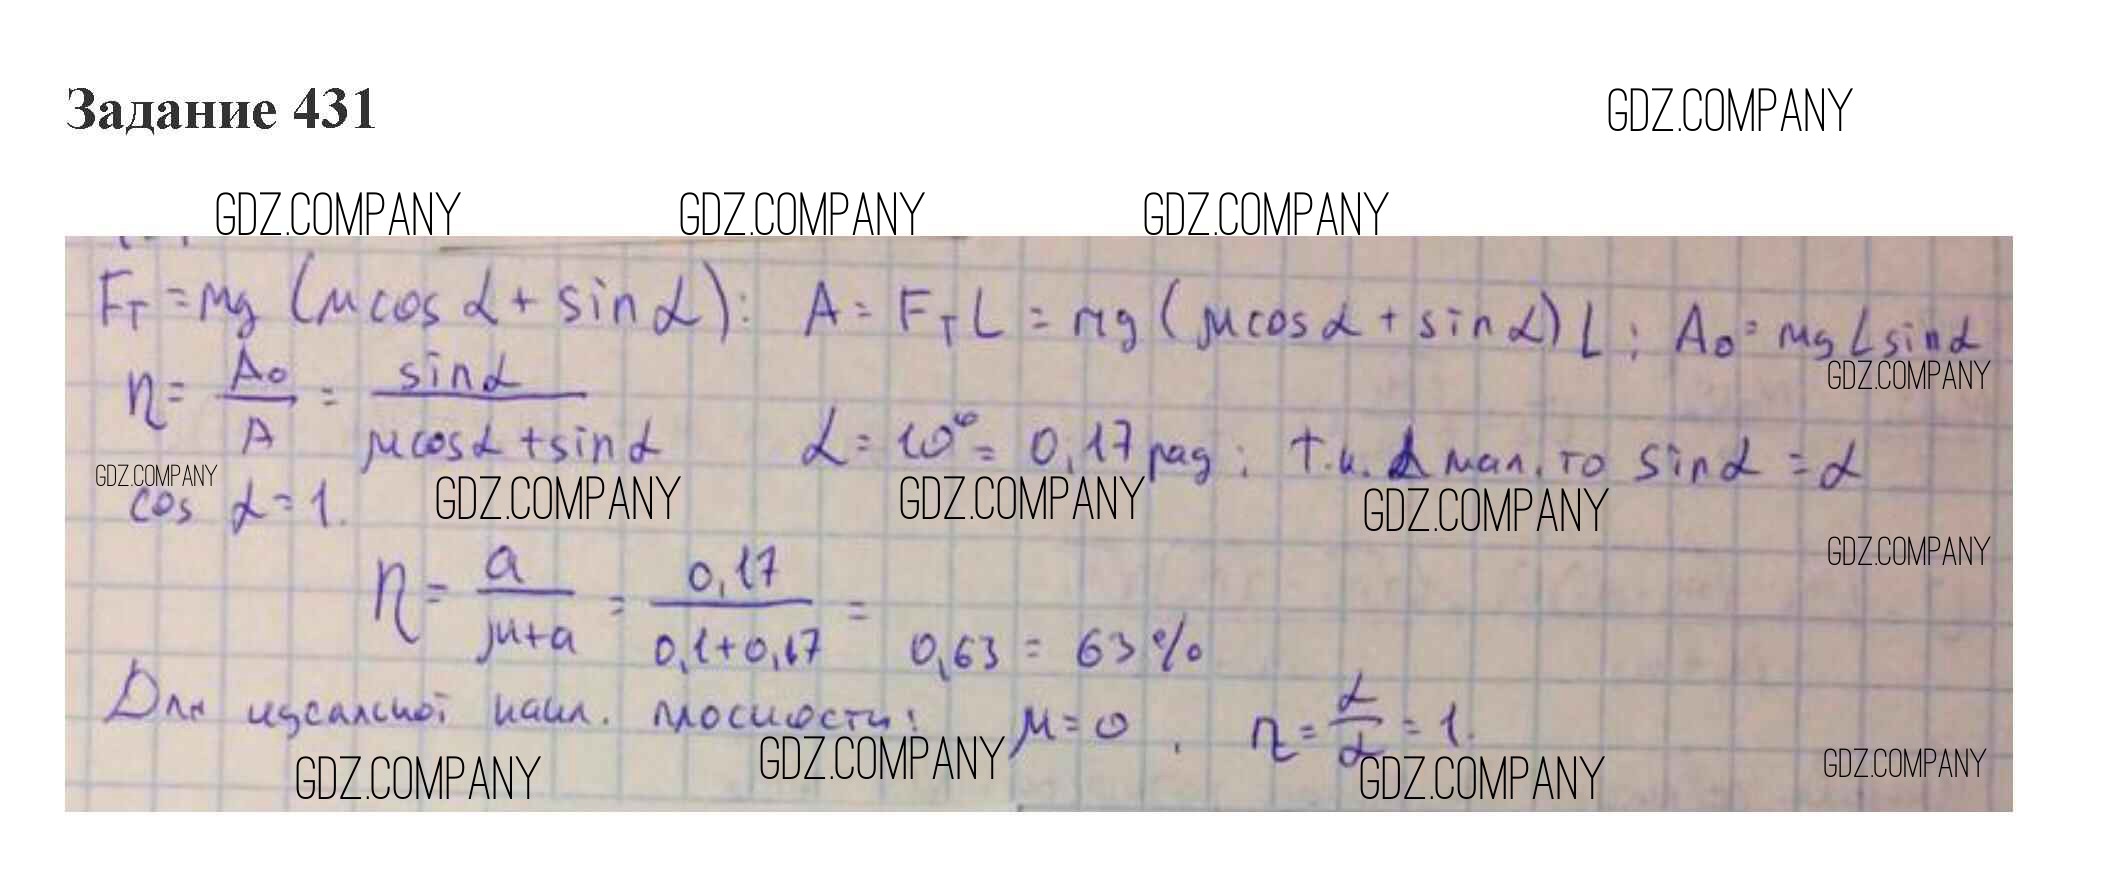 Задание 431
GDZ.COMPANY
GDZ.COMPANY GDZ.COMPANY GDZ.COMPANY
Fт = mg (μ cos α + sin α): A = FтL = mg (μ cos α + sin α) L; A₀ = mg L sin α
GDZ.COMPANY
η = A₀/A = sin α/(μ cos α + sin α) α = 10° = 0,17 рад; т.к. α мал. то sin α = α
GDZ.COMPANY
cos α = 1. GDZ.COMPANY GDZ.COMPANY GDZ.COMPANY
GDZ.COMPANY
η = a/(μ+a) = 0,17/(0,1+0,17) = 0,63 = 63 %
Для идеальной накл. плоскости: μ = 0, η = α/α = 1.
GDZ.COMPANY GDZ.COMPANY GDZ.COMPANY GDZ.COMPANY